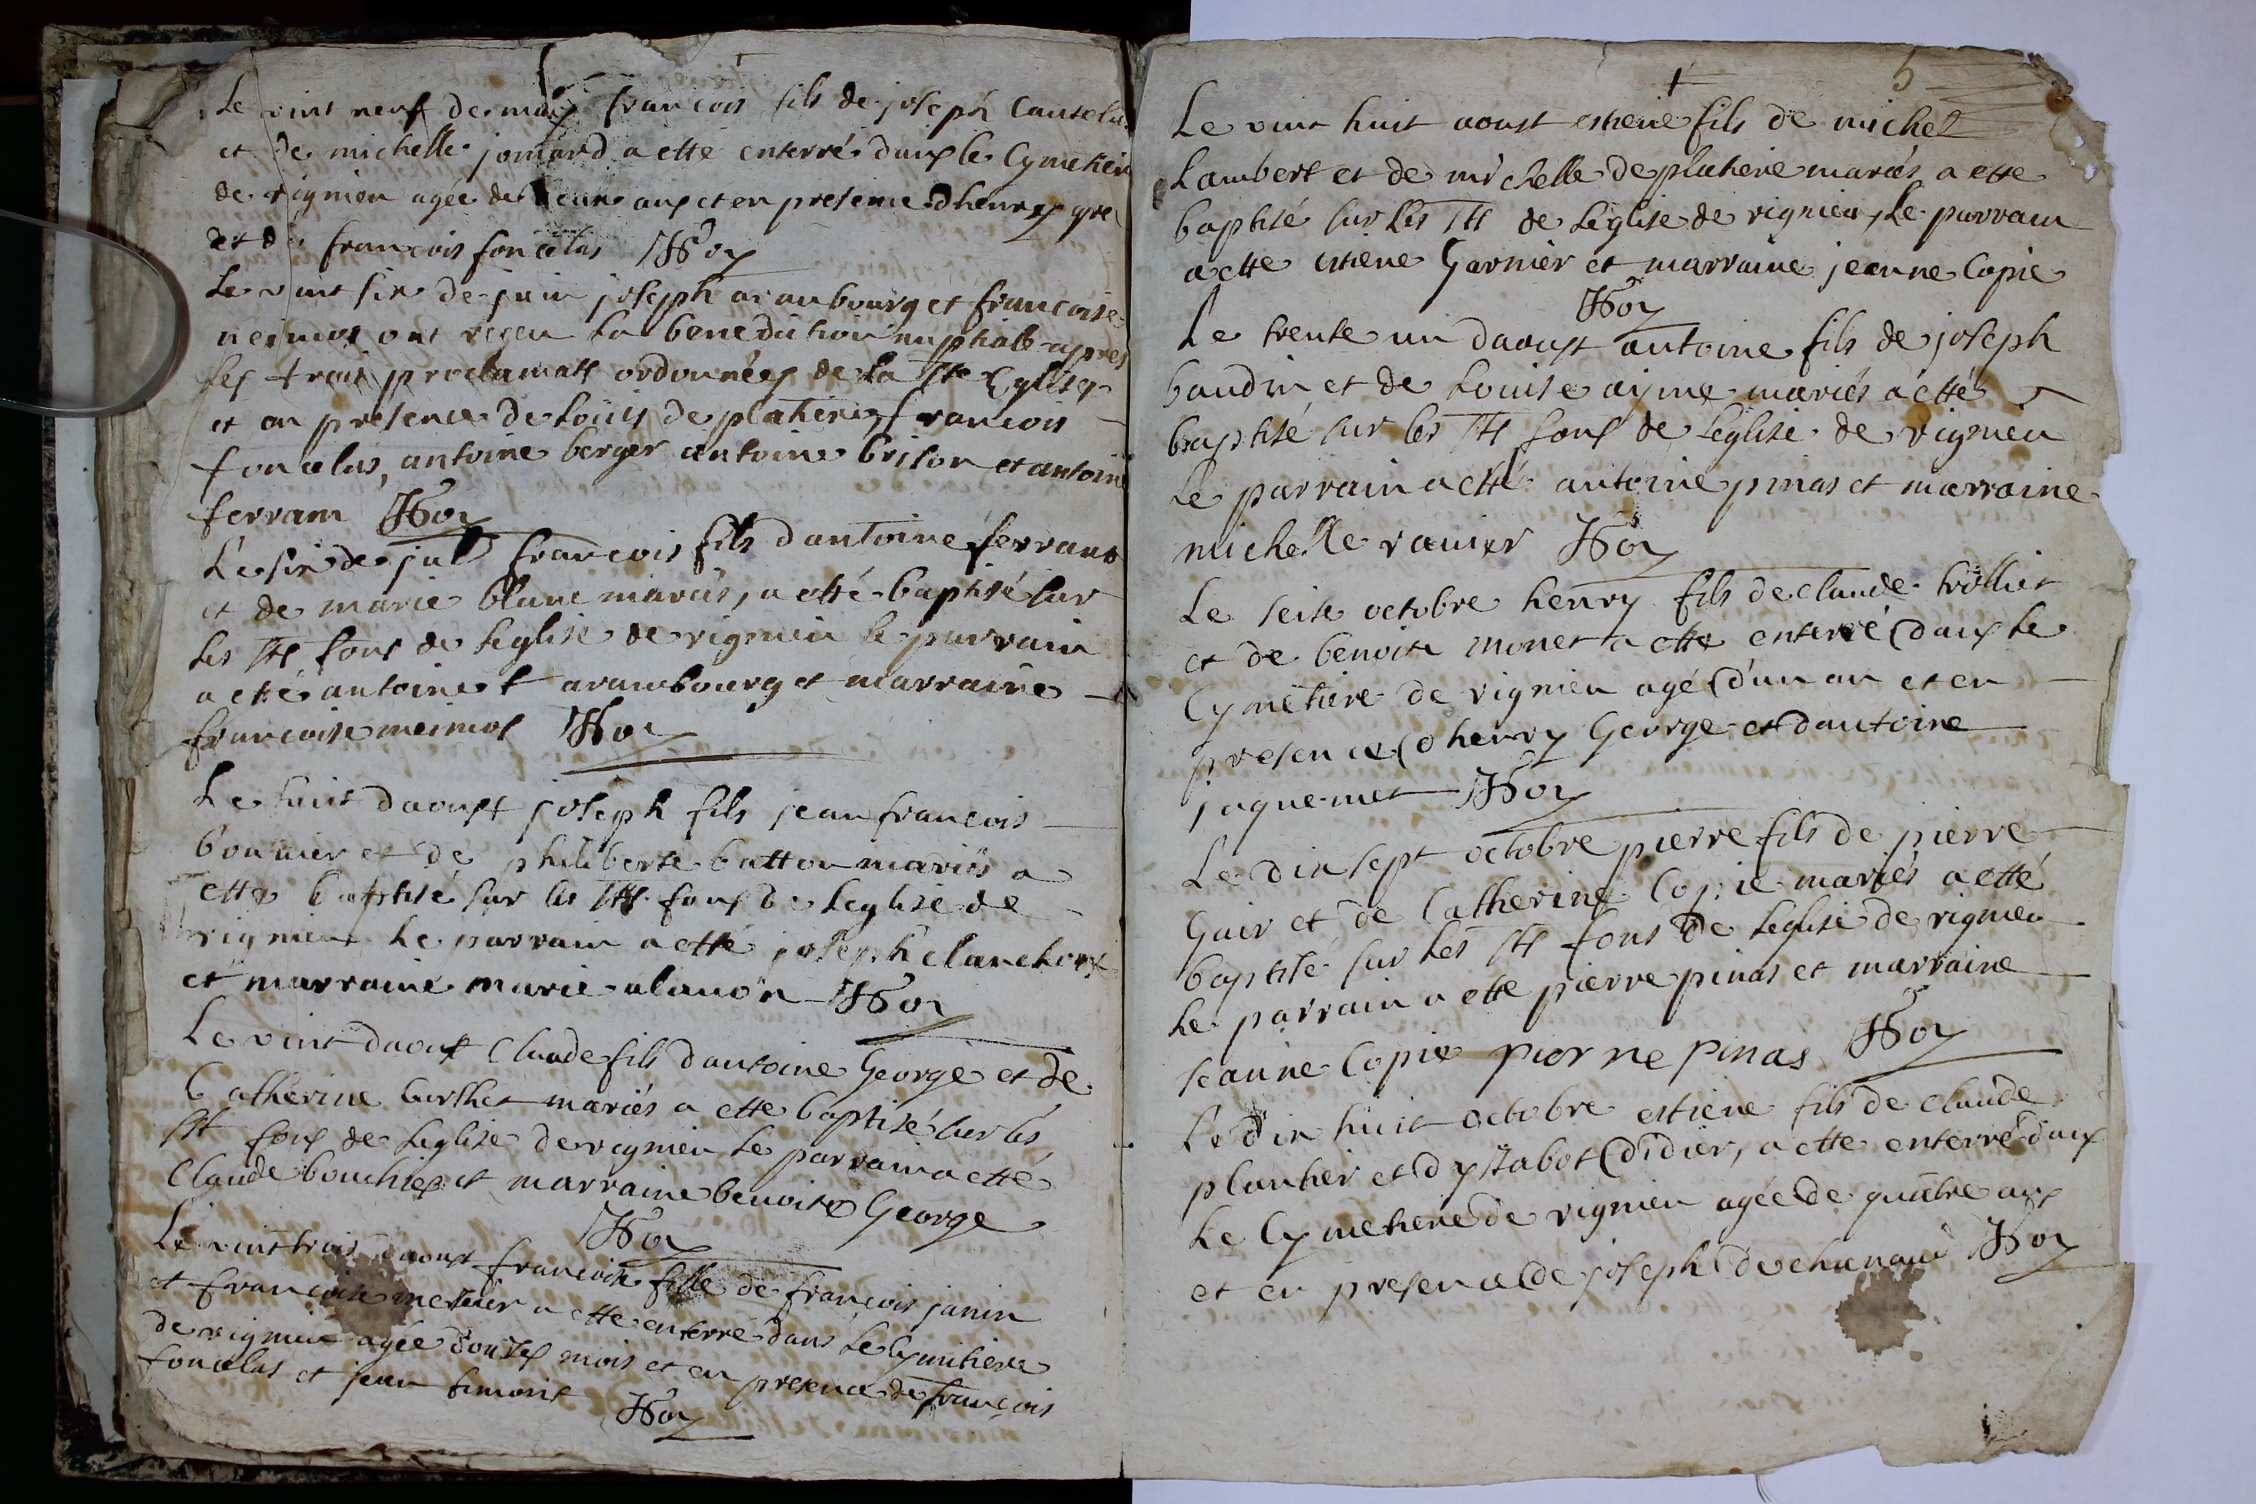 Le vint neuf de may francois fils de joseph Cautela
et de michelle jomard a etté enterré dans le Cymetier
de vignieu agée de ans et en presence dhenry
et de francois foncelas
Le vint six de juin joseph arambourg et francoise
meimos ont reçeu la benediction nuptialle apres
les trois proclamatt ordonnées de la ste Eglise
et en presence de Louis de platiere, francois
foncelas, antoine berger antoine brison et antoine
ferram
Le six de jul francois fils dantoine ferrans
et de marie blanc mariés, a etté baptisé sur
les stt fons de Leglise de vignieu le parrain
a etté antoine arambourg et marraine
francoise meimos
Le huit daoust joseph fils jean francois
bonnier et de philiberte batton mariés a
ette baptisé sur les stt fons de Leglise de
vignieu Le parrain a etté joseph clanchon
et marraine marie alanon
Le vint daoust Claude fils dantoine George et de
Catherine barthet mariés a ette baptisé sur les
stt fons de Leglise de vignieu Le parrain a etté
Claude bouchier et marraine benoite George
Le vint trois daoust francoise fille de francois janin
et francoise mettier a ette enterré dans Le Cymitiere
de vignieu agée douses mois et en presence de francois
foncelas et jean simoni
5
Le vint huit aoust estiene fils de michel
Lambert et de michelle de platiere mariés a ette
baptisé sur les stt de Leglise de vignieu, Le parrain
a ette estiene Garnier et marraine jeanne Copie
Le trente un daoust antoine fils de joseph
baudin et de Louise ayme mariés a etté
baptisé sur les stt fons de Leglise de vignieu
Le parrain a etté antoine pinas et marraine
michelle ravier
Le seise octobre henry fils de claude trolliet
et de benoite monet a ette enterré dans Le
Cymetiere de vignieu agé d'un an et en
presence dhenry George et dantoine
jaquemet
Le dix sept octobre pierre fils de pierre
Guir et de Catherine Copie mariés a etté
baptisé sur Les stt fons de Leglise de vignieu
Le parrain a ette pierre pinas et marraine
jeanne Copie pierne pinas
Le dix huit octobre estiene fils de claude
plantier et dysabot didier, a ette enterré dans
Le Cymetiere de vignieu agée de quatre ans
et en presence de joseph dechanaud